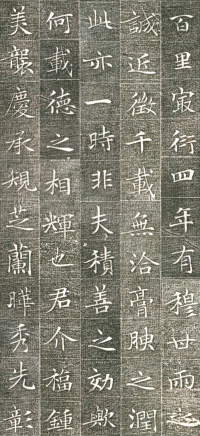 百里寔衍四年有穆世雨之
誠近徵千載無洽膏腴之潤
此亦一時非夫積善之効歟
何載德之相輝也君介福鍾
美襲慶承規芝蘭曄秀先彰